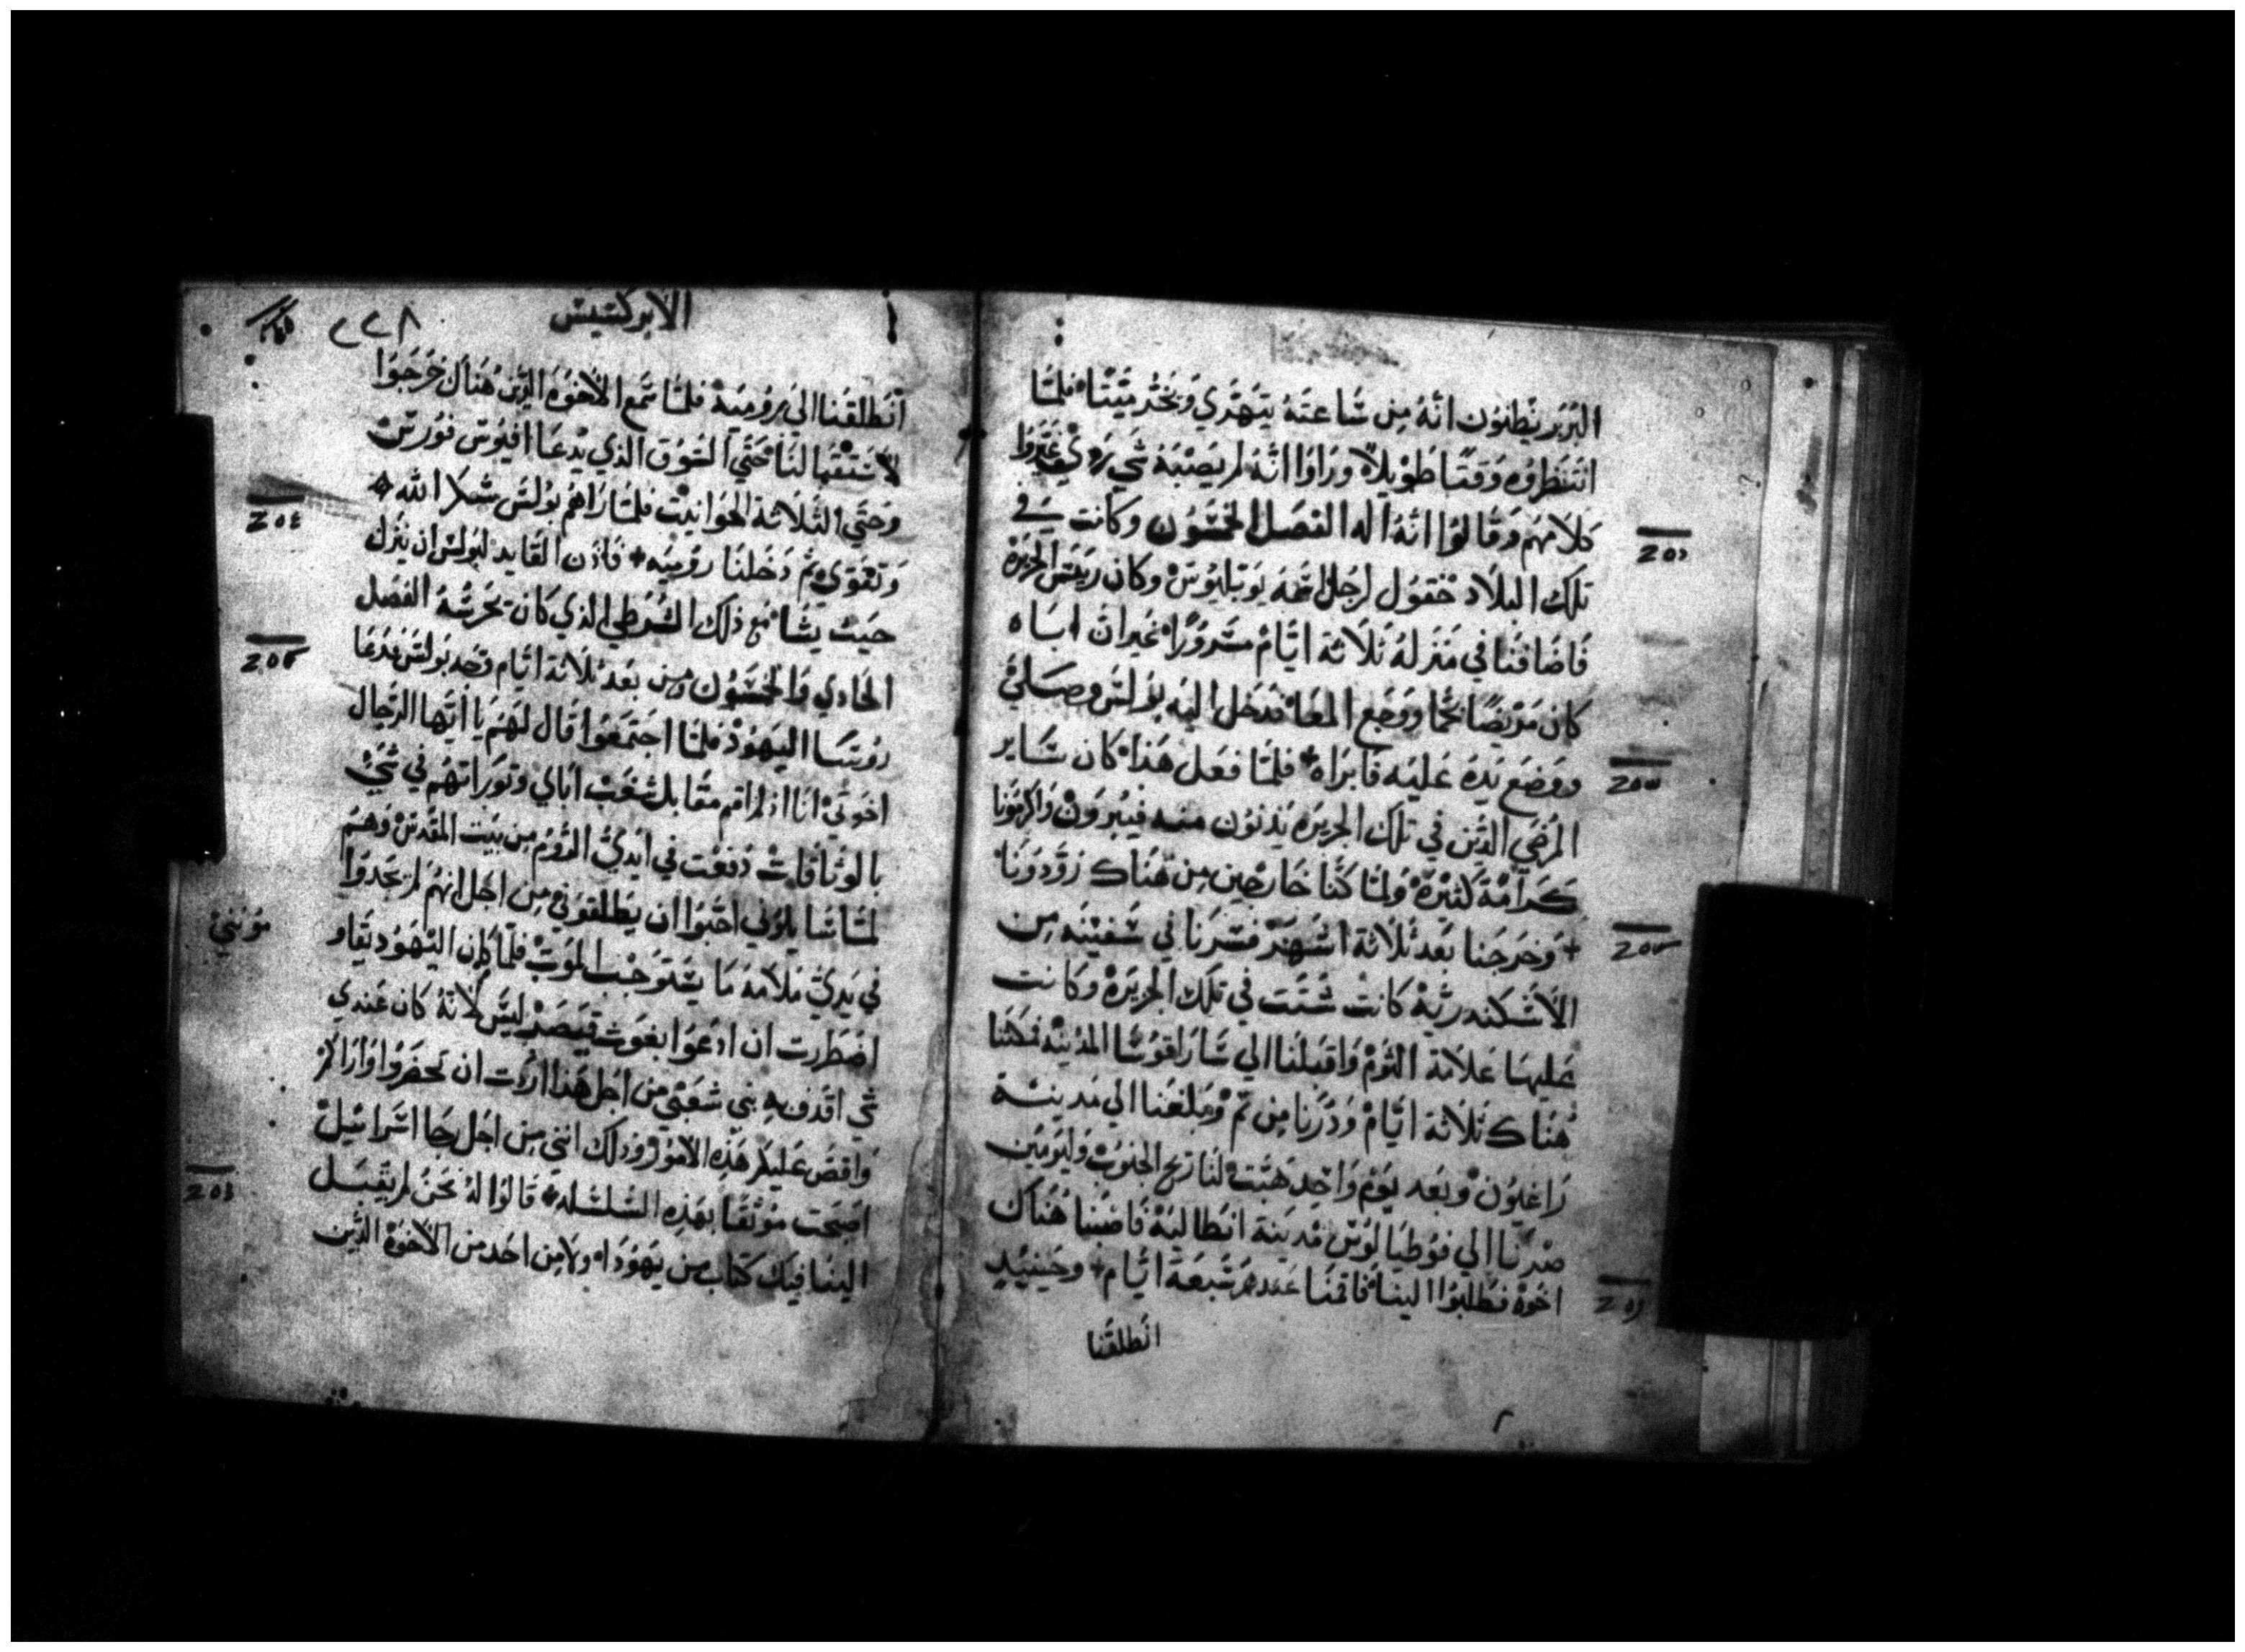 البَربَر يَظنون انهُ مِن سَاعتهُ يتهَري وَيخُر مَيتًا فلمَّا
انتَظروُه وَقتًا طَويلاً ورَاوا انهُ لم يَصبهُ شي ردي غيَّروا
كلامهم وَقالوا انهُ اله الفصَل الخمسون وكانت في
تلك البلاد حقول لرَجل اسمَه بوبَليوس وكان ريَيس الجزيرَة
فاضافنا في منزلهُ ثلاثة ايَّام مسرورًا غير ان اباه
كان مَريضًا بحمَّا ووجع المعَا فدَخل اليه بولس وصلي
ووضع يَدهُ عَليه فابرَاه فلمَّا فعَل هَذا كان سَاير
المرضي الذين في تلك الجزيره يَدنون منه فيَبرون واكرَمونا
كرَامة كثيرَة ولمَّا كنَّا خارجين مِن هناك زوَّدونا
وخرَجنا بَعد ثلاثة اشهر فسِرنا في سَفينه مِن
الاسكندريَّة كانت شتت في تلك الجزيرَة وكانت
عليها علامة التوم واقبلنا الي سَاراقوسا المدينه فمكثنا
هناك ثلاثة ايَّام ودُرنا مِن ثم وبلغنا الي مدينة
راغيون وبعد يَوم واحِد هبَّت لنا ريح الجنوب وليَومَين
صرنا الي فوطيالوس مَدينة انطالية فاصبنا هناك
اخوة فطلبوا الينا فاقمنا عندهم سَبعَة ايَّام وحينيدٍ
انطلقنا
الابركسيس
٢٢٨
انطلقنا الي روميَة فلمَّا سَمع الاخوَة الذين هناك خرَجوا
لاستقبالنا حتي السوق الذي يدعَا افيوس فورس
وحتي الثلاثة الحوانيت فلمَّا راهم بولس شكر الله
وتقوي ثم دَخلنا روميَه فاذن القايد لبولس ان ينزل
حيث يشا مع ذلك الشرطي الذي كان يحرسهُ الفصَل
الحَادي والخمسون ومن بَعد ثلاثة ايَّام وجه بولس فدعَا
روسَا اليهود فلمَّا اجتمعوا قال لهم يا ايها الرجال
اخوتي انا اذ لم اقم مقابل شعب اباي وتوراتهم في شي
بالوثاقات دفعت في ايدي الروم مِن بيت المقدس وهم
لمَّا سَايلوني احبوا ان يَطلقوني مِن اجل انهم لم يجدوا
في يدي ملامة ما يستوجب الموت فلمَّا كان اليهود يقاو
مونني
اضطررت ان ادعوا بغوث قيصر ليس لانهُ كان عندي
شي اقذف به بني شعبي من اجل هذا اردت ان تحضروا واراكم
واقص عليكم هذه الامور وذلك انني مِن اجل رجا اسرائيل
اصبحت موثقًا بهذه السلسله قالوا لهُ نحن لم يقبل
الينا فيك كتاب مِن يهودا ولا مِن احد من الاخوة الذين